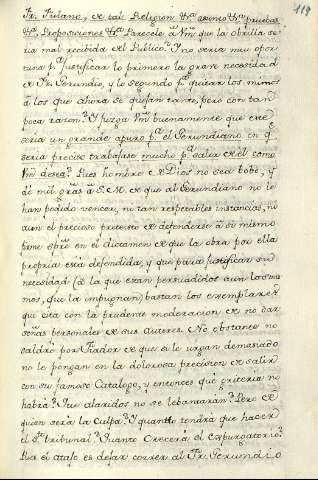 119
Fr. Fulano, de tal Religion &ra asunto &ra pruebas
&ra, Proposiciones &ra Parecele à Vm que la obrilla se
ria mal recibida del Publico? Y no seria muy opor
tuna pa justificar lo primero la gran necesidad
de Fr. Gerundio, y lo segundo pa quitar los mimos
à los que ahora se quejan tanto, pero con tan
poca razon? Y juzga Vm buenamente que este
seria un grande apuro pa el Gerundiano en q
seria preciso trabajase mucho pa salir de èl como
Vm desea? Pues hombre de Dios no sea bobo, y
dè mil gras à S.M. de que al Gerundiano no le
han podido vencer, ni tan respetables instancias, ni
aun el precioso pretexto de defenderse à si mismo
firme spre en el dictamen de que la obra por ella
propria està defendida, y que para justificar su
necesidad (de la que estàn persuadidos aun los mis
mos, que la impugnan) bastan los exemplares
que cita con la prudente moderacion de no dar
señas personales de sus Autores. No obstante no
saldrè por Fiador de que si le urgen demasiado
no le pongan en la dolorosa precision de salir
con su famoso Catalogo, y entonces què griteria no
habrà? Què alaridos no se lebantaràn? Pero de
quien serà la culpa? Y quanto tendrà que hacer
el Sto tribunal? Quanto Crecerà el Expurgatorio?
Pues el atajo es dejar correr al Fr. Gerundio